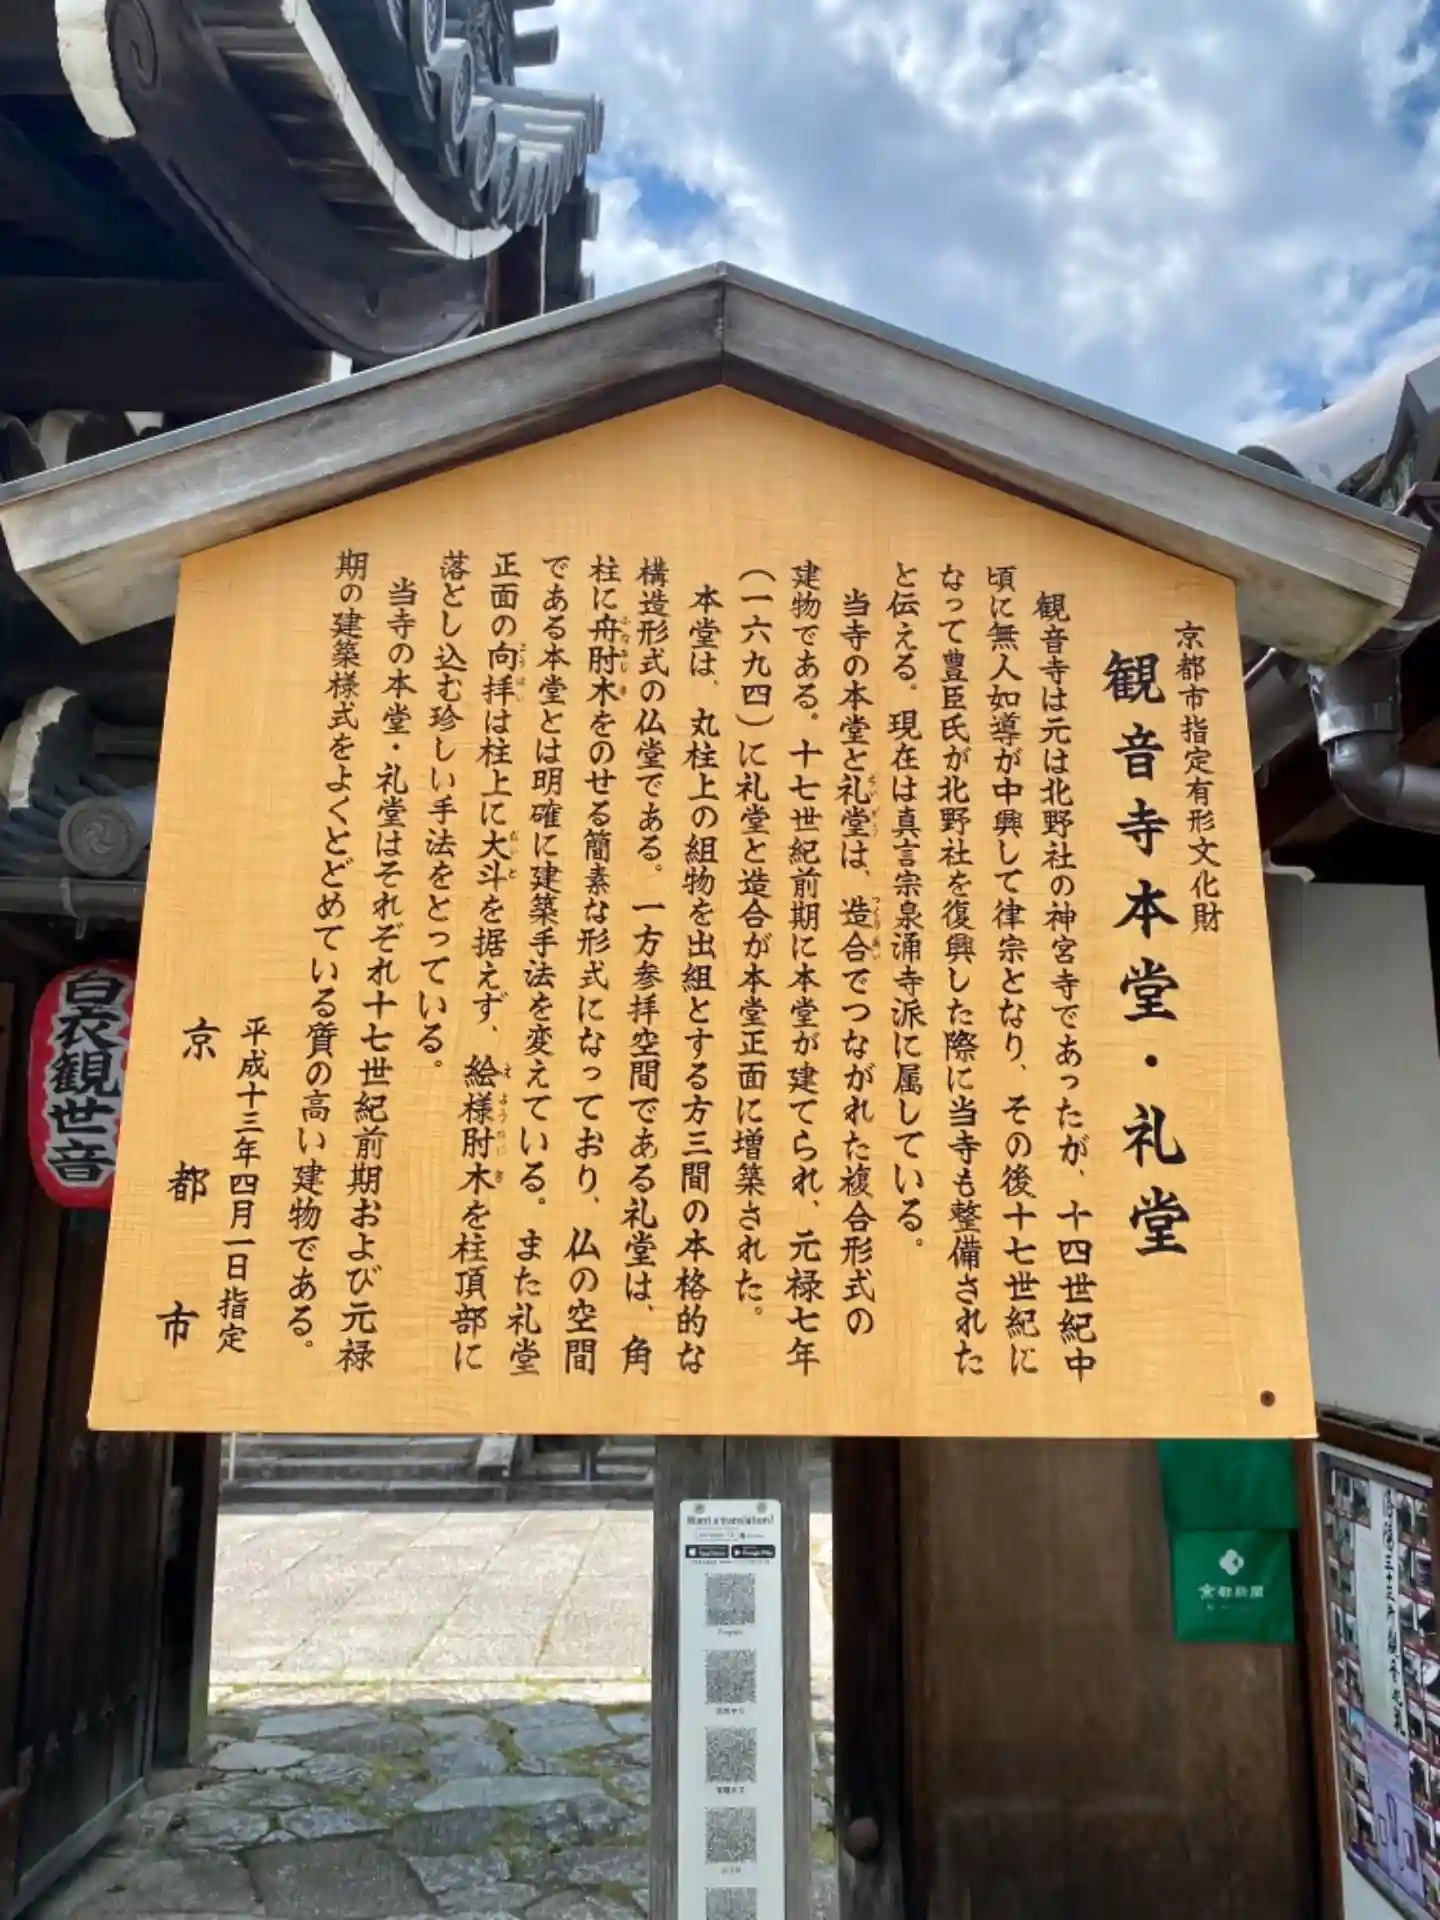 京都市指定有形文化財
観音寺本堂・礼堂
観音寺は元は北野社の神宮寺であったが、十四世紀中
頃に無人如導が中興して律宗となり、その後十七世紀に
なって豊臣氏が北野社を復興した際に当寺も整備された
と伝える。現在は真言宗泉涌寺派に属している。
当寺の本堂と礼堂は、造合でつながれた複合形式の
建物である。十七世紀前期に本堂が建てられ、元禄七年
(一六九四)に礼堂と造合が本堂正面に増築された。
本堂は、丸柱上の組物を出組とする方三間の本格的な
構造形式の仏堂である。一方参拝空間である礼堂は、角
柱に舟肘木をのせる簡素な形式になっており、仏の空間
である本堂とは明確に建築手法を変えている。また礼堂
正面の向拝は柱上に大斗を据えず、絵様肘木を柱頂部に
落とし込む珍しい手法をとっている。
当寺の本堂・礼堂はそれぞれ十七世紀前期および元禄
期の建築様式をよくとどめている質の高い建物である。
平成十三年四月一日指定
京都市
白衣観世音
Want a translation?
App Store
Google Play
English
京都新聞